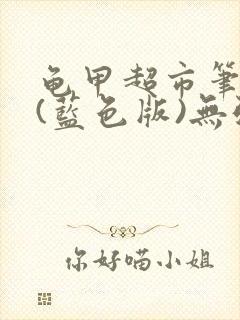 龟甲超市筆
(藍色版)無
你好喵小姐